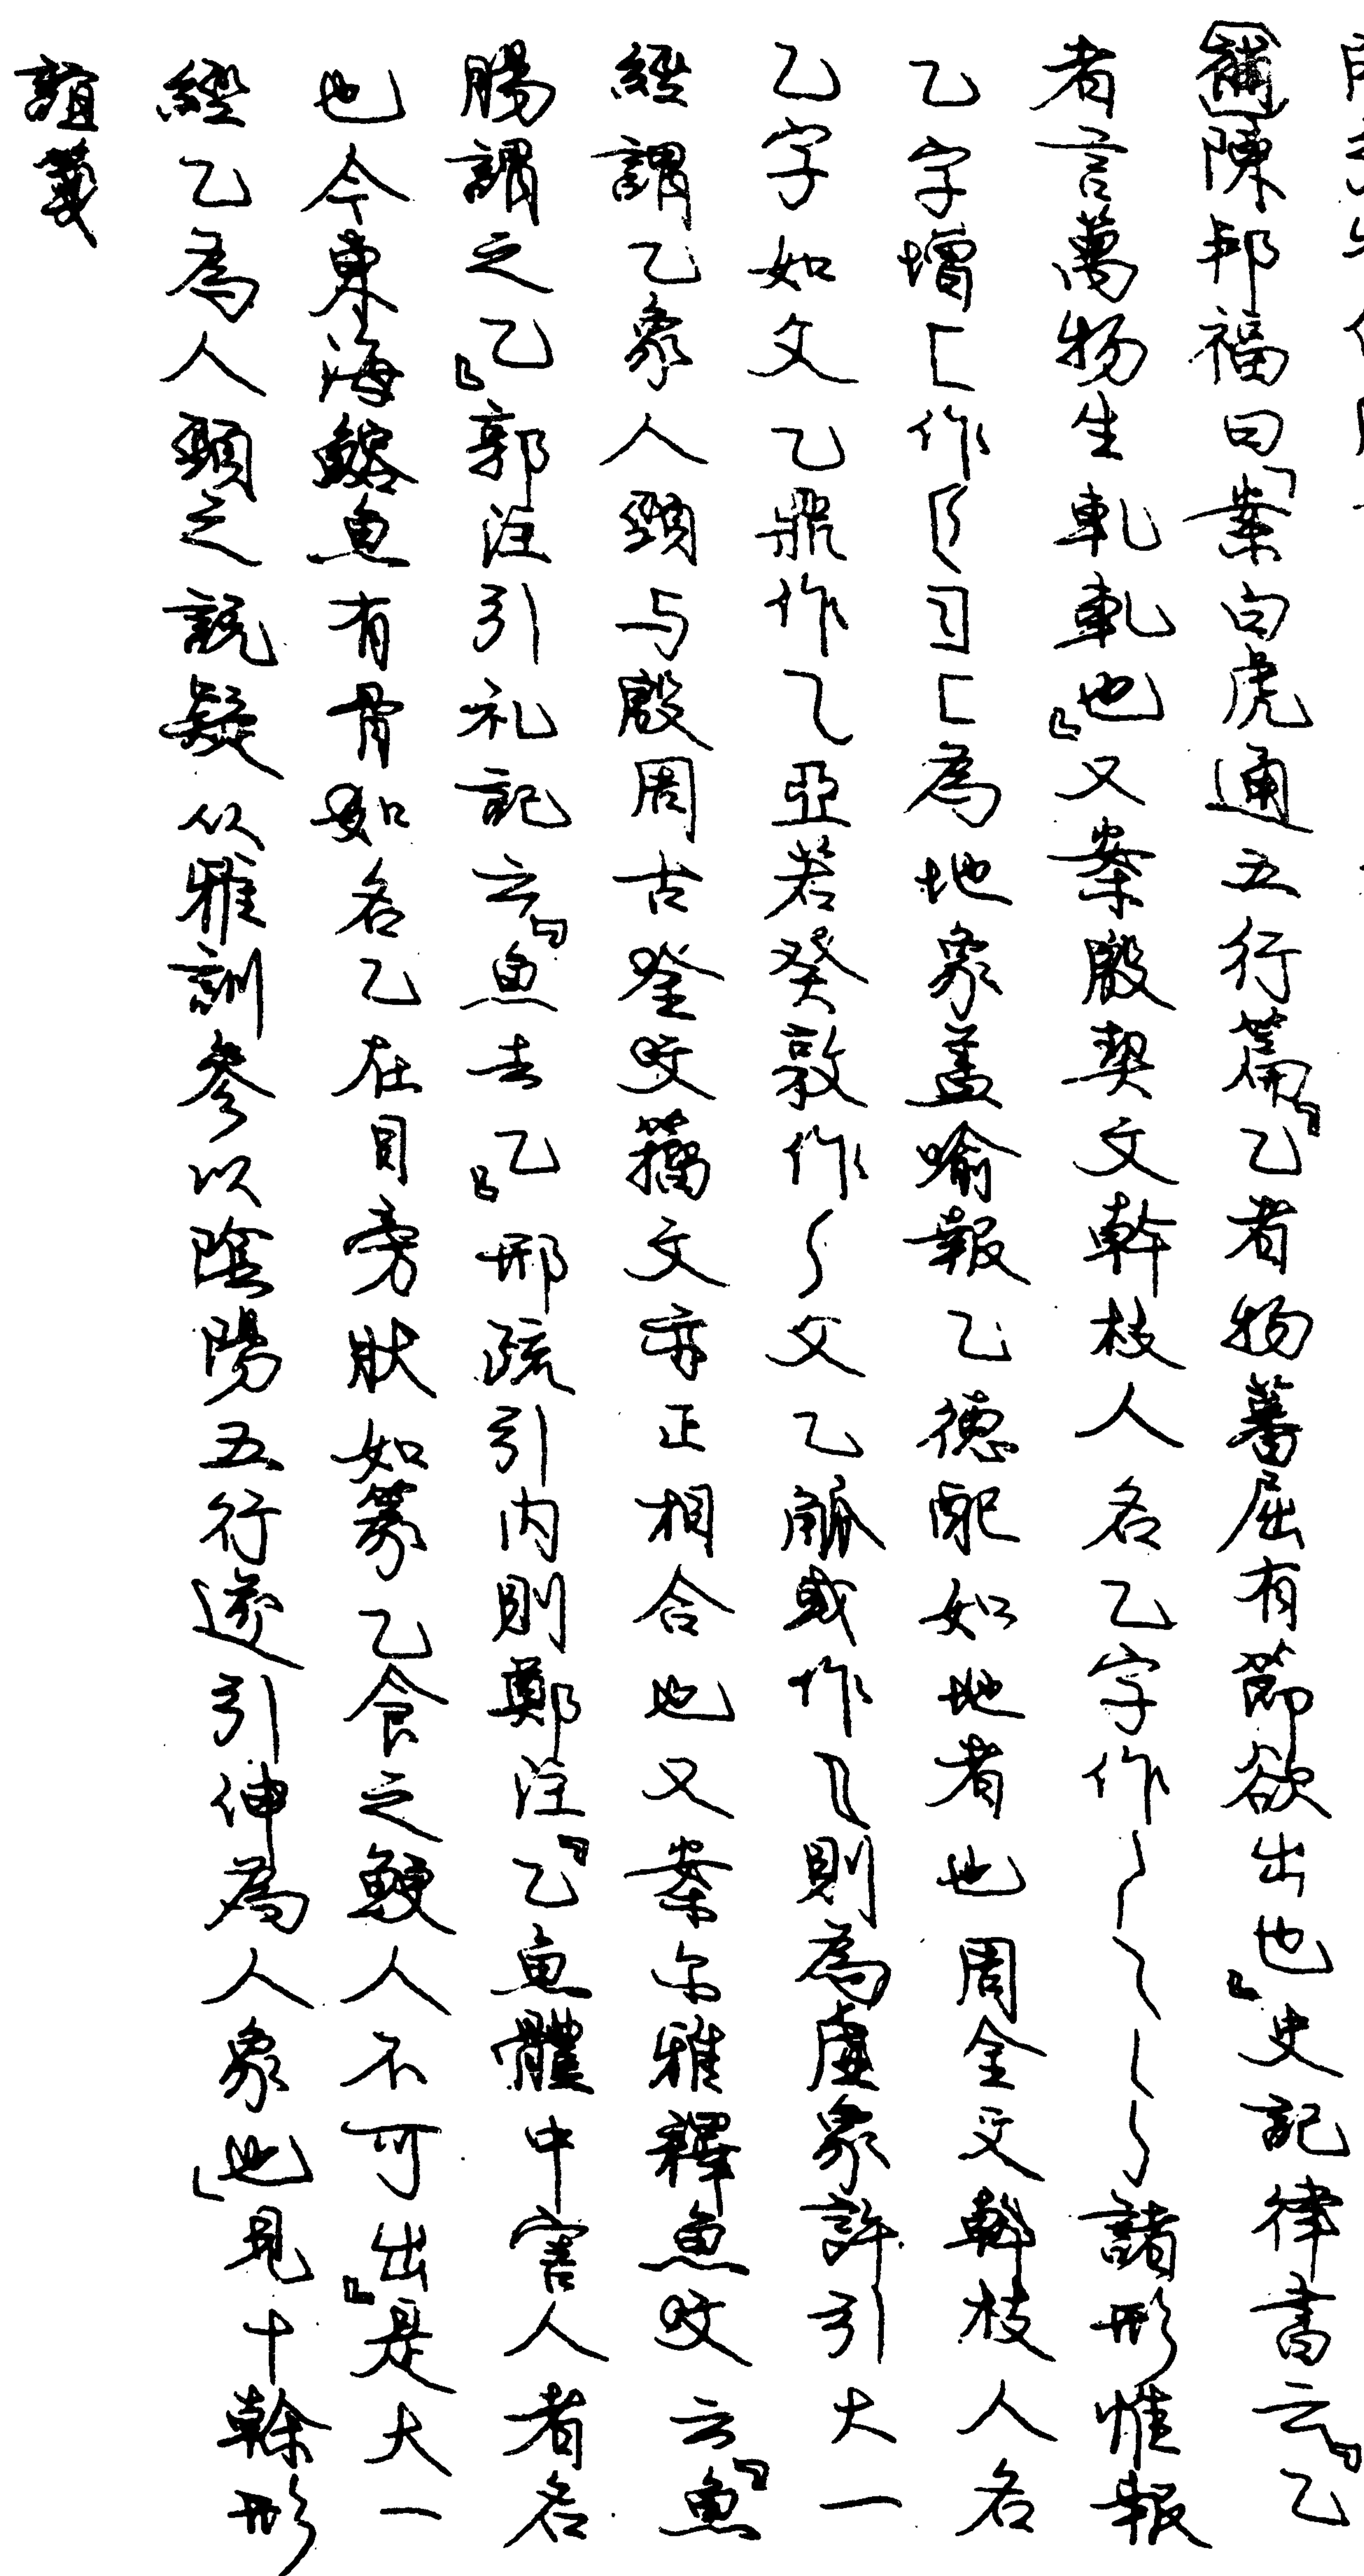 補陳邦福曰「案白虎通五行篇『乙者物蕃屈有節欲出也』史記律書云『乙
者言萬物生軋軋也』又案殷契文榦枝人名乙字作諸形惟報
乙字增匚作匚為地象蓋喻報乙德配如地者也周金文榦枝人名
乙字如文乙鼎作乙亞若癸敦作文乙觚或作則為虛象許引大一
經謂乙象人頸与殷周古金文籀文亦正相合也又案尔雅釋魚文云『魚
腸謂之乙』郭注引礼記云『魚去乙』邢疏引內則鄭注『乙魚體中害人者名
也今東海鰫魚有骨如名乙在目旁狀如篆乙食之鯁人不可出』是大一
經乙為人頸之說疑從雅訓參以陰陽五行遂引伸為人象也」見十榦形
誼箋